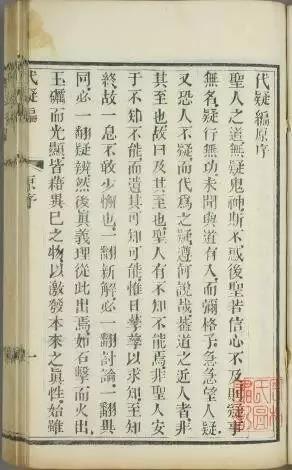 代疑編原序
聖人之道無疑鬼神斯不惑後聖若信心不及則疑事
無名疑行無功未聞與道有入而彌格子急急望人疑
又恐人不疑而代爲之疑遵何說哉葢道之近人者非
其至也故曰及其至也聖人有不知不能焉非聖人安
于不知不能而遺其可知可能惟日孳孳以求知至知
終故一息不敢少懈也一翻新解必一翻討論一翻異
同必一翻疑辨然後眞義理從此出焉如石擊而火出
玉礪而光顯皆藉異巳之物以激發本來之眞性始雖
代疑編 原序 一